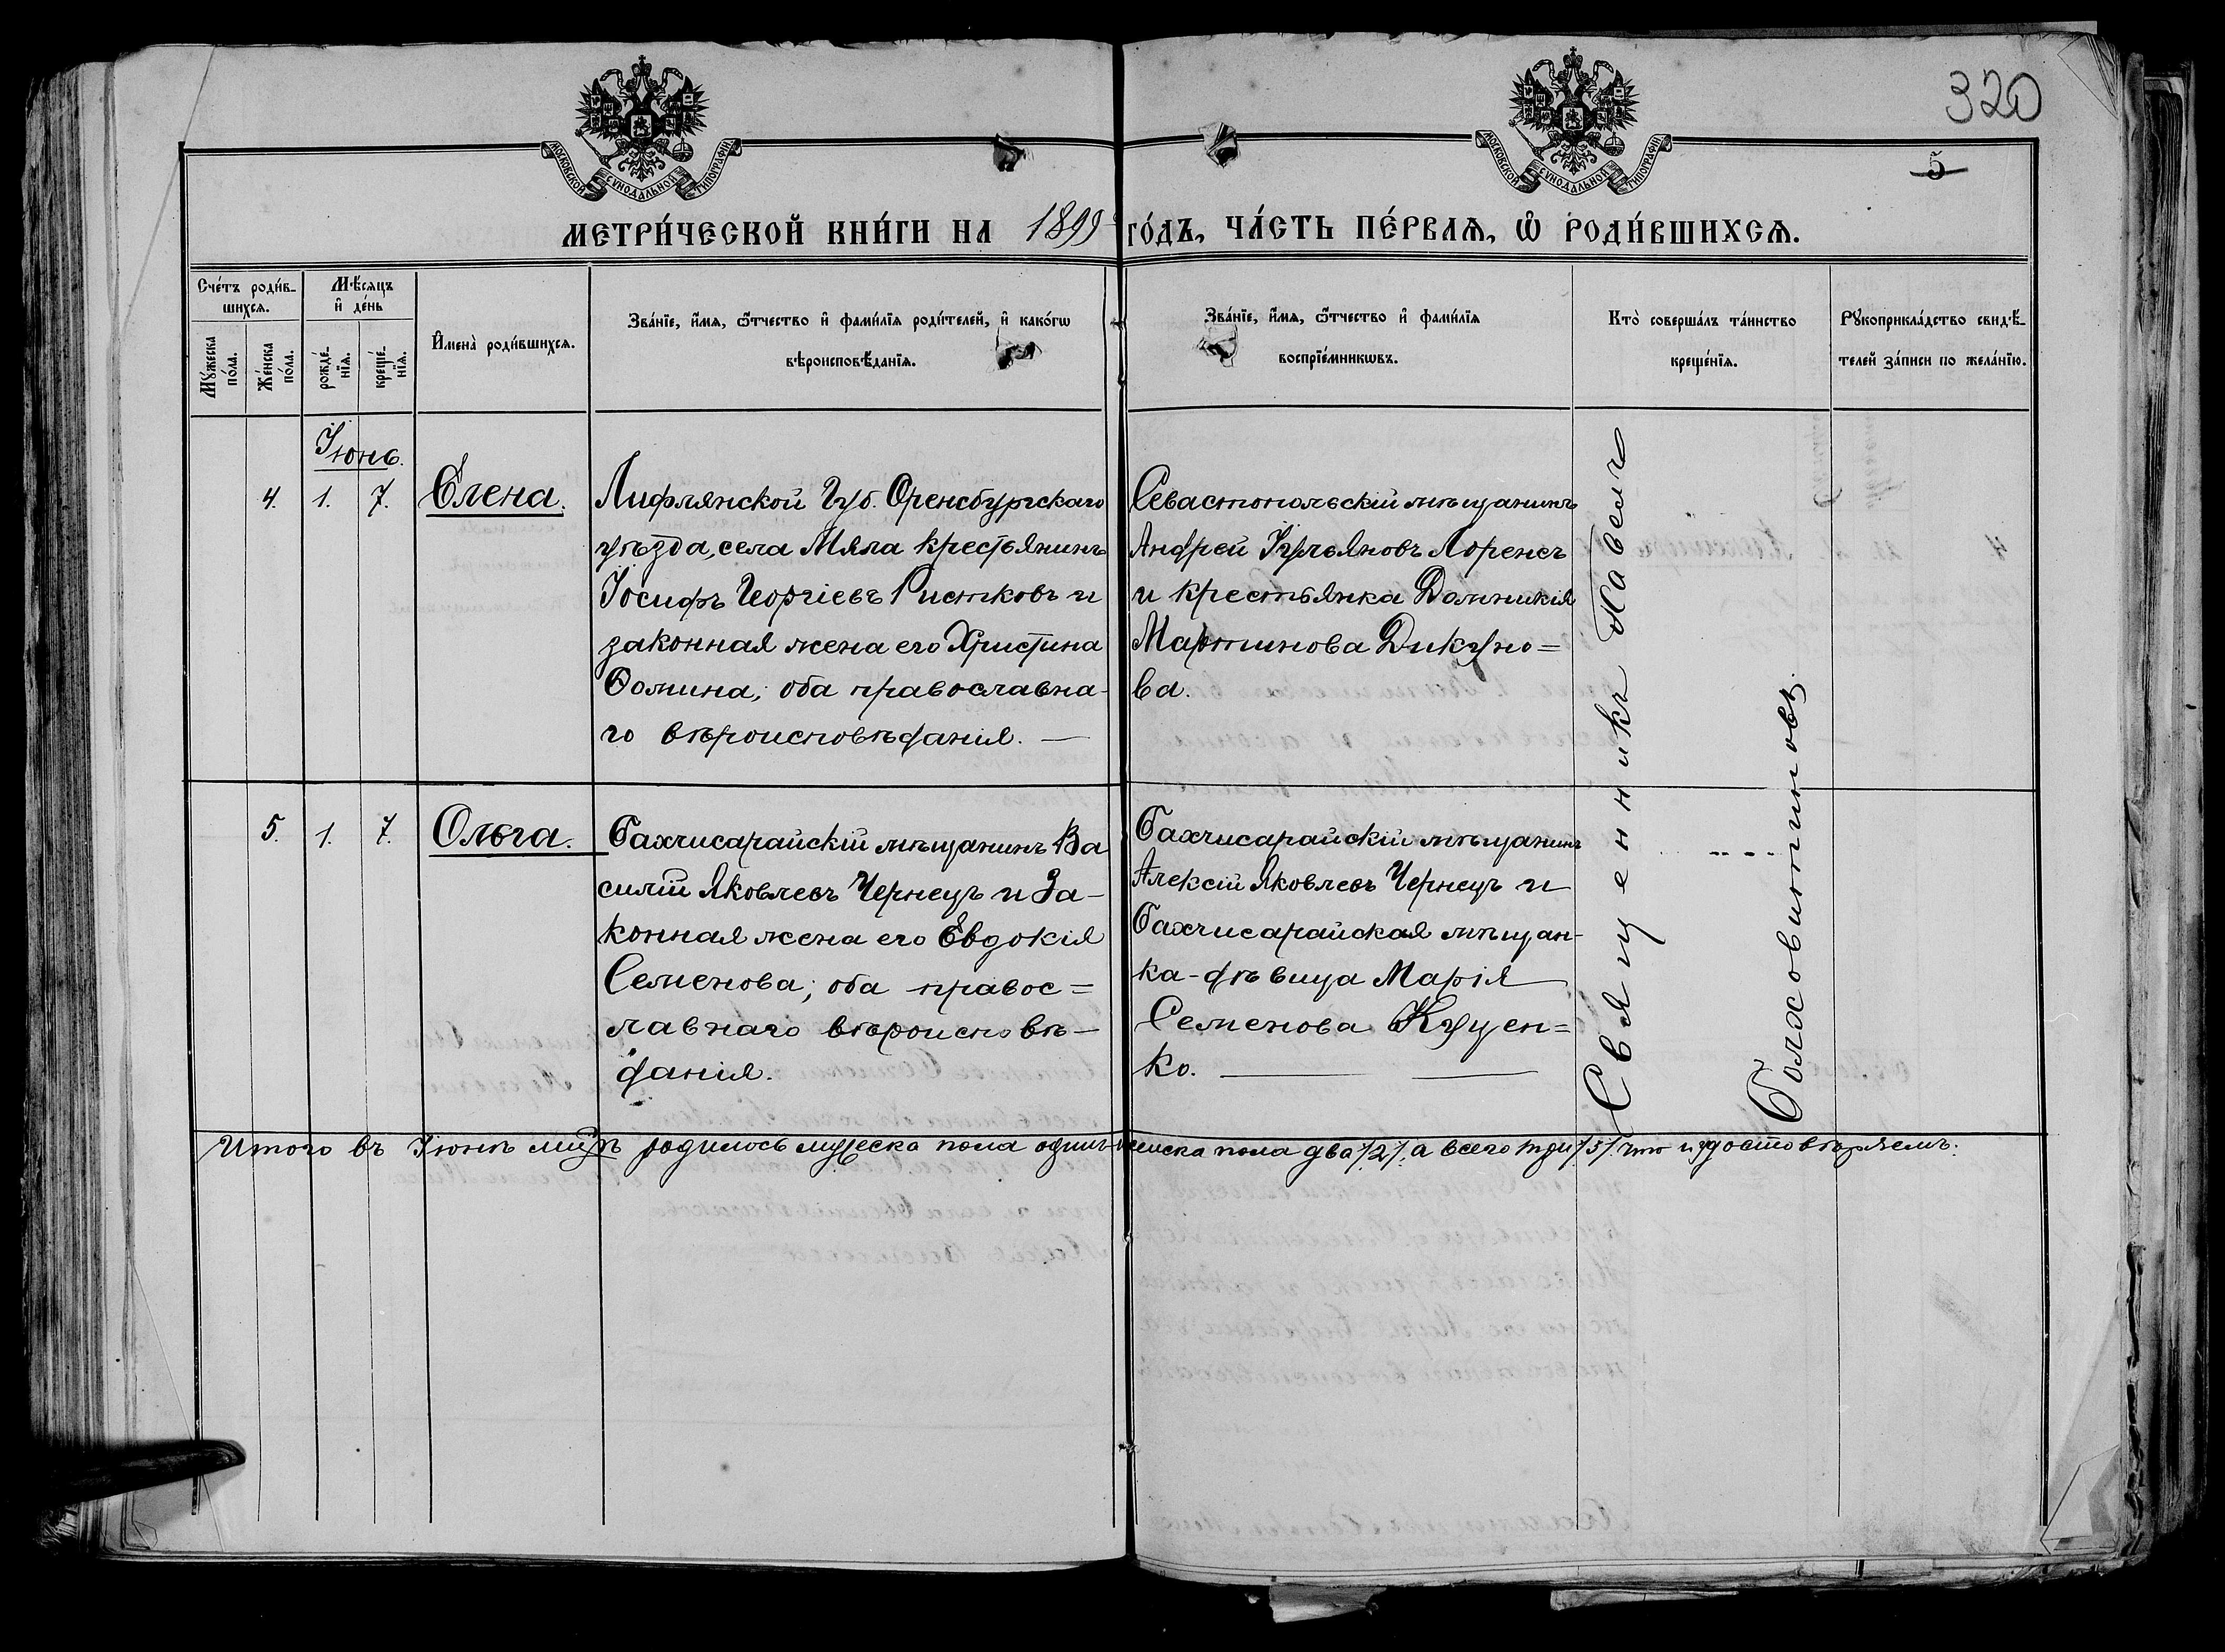 320
5
МОСКОВСКОЙ СѴНОДАЛЬНОЙ ТИПОГРАФІИ
МОСКОВСКОЙ СѴНОДАЛЬНОЙ ТИПОГРАФІИ
МЕТРИ́ЧЕСКОЙ КНИ́ГИ НА 1899 ГО́ДЪ, ЧА́СТЬ ПЕ́РВАѦ, Ѡ҆ РОДИ́ВШИХСѦ.
Сче́тъ роди́в-
шихсѧ.
Мꙋ́жеска
по́ла.
Же́нска
по́ла.
Мѣ́сѧцъ
и҆ де́нь
рожде́-
нїѧ.
креще́-
нїѧ.
И҆мена̀ роди́вшихсѧ.
Зва́нїе, и҆́мѧ, ѻ҆́тчество и҆ фами́лїѧ роди́телей, и҆ како́гѡ
вѣроисповѣ́данїѧ.
Зва́нїе, и҆́мѧ, ѻ҆́тчество и҆ фами́лїѧ
воспрїе́мникѡвъ.
Кто̀ соверша́лъ та́инство
креще́нїѧ.
Рꙋкоприкла́дство свидѣ́-
телей за́писи по жела́нїю.
Іюнь.
4. 1. 7. Елена.
Лифлянской Губ. Оренсбургскаго
уѣзда, села Мяла крестьянинъ
Іосифъ Георгіевъ Ристковъ и
законная жена его Христина
Ѳомина; оба православна-
го вѣроисповѣданія. —
Севастопольскій мѣщанинъ
Андрей Іульяновъ Лоренсъ
и крестьянка Домникія
Мартинова Дикуно=
ва.
5. 1. 7. Ольга.
Бахчисарайскій мѣщанинъ Ва
силій Яковлевъ Чернецъ и За-
конная жена его Евдокія
Семенова; оба правос=
лавнаго вѣроисповѣ-
данія.
Бахчисарайскій мѣщанинъ
Алексій Яковлевъ Чернецъ и
Бахчисарайская мѣщан-
ка-дѣвица Марія
Семенова Куцен=
ко. —
Священникъ Павелъ
Итого въ Іюнѣ мцѣ родилось мужеска пола одинъ женска пола два /2/, а всего три /3/ что и удостовѣряемъ: